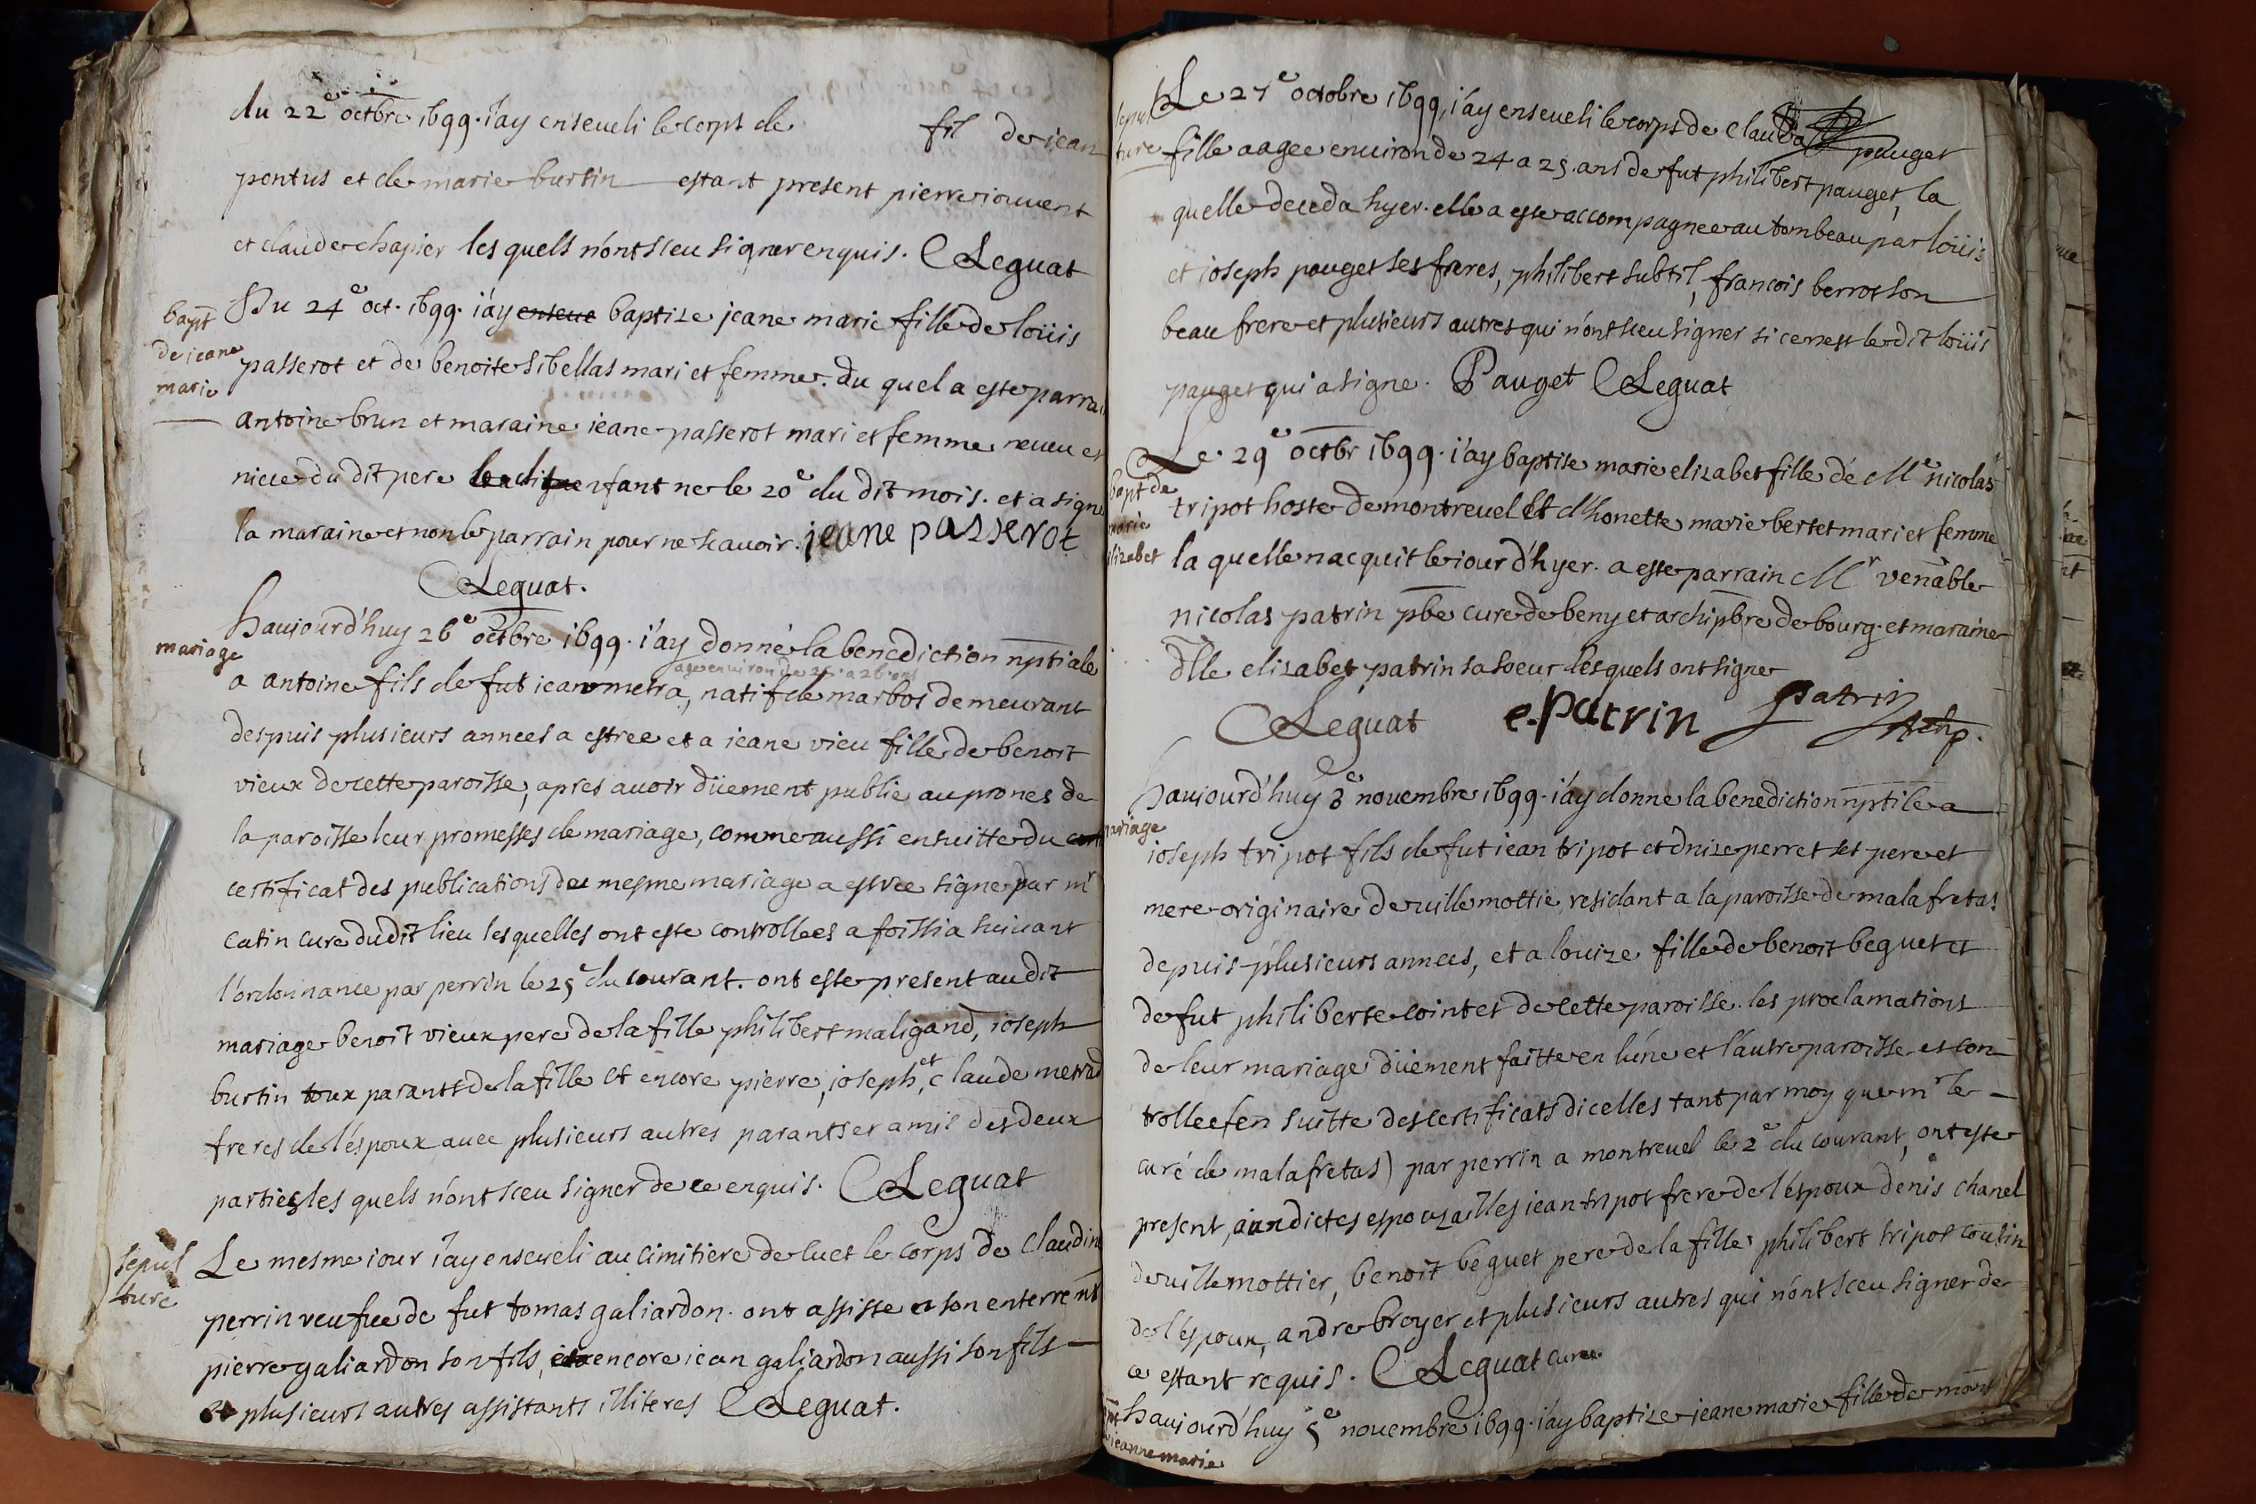 du 22e octbre 1699. i'ay enseueli le corps de fil de iean
pontus et de marie burtin estant present pierre iouuent
et claude chapier les quels n'ont sceu signer enquis. Leguat
bapt
de ieane
marie
Du 24e oct. 1699. i'ay enseue baptize jeane marie fille de loüis
passerot et de benoite sibellas mari et femme. du quel a este parrai
antoine brun et maraine ieane passerot mari et femme neueu et
niece du dit pere enfant ne le 20e du dit mois. et a signe
la maraine et non le parrain pour ne scauoir. jeane passerot
Leguat.
mariage
haujourd'huy 26e octbre 1699. i'ay donné la benediction nptiale
age enuiron de 25 a 26 ans
a antoine fils de fut iean metra, natif de marbos demeurant
despuis plusieurs annees a estree et a ieane vieu fille de benoit
vieux de cette paroisse, apres auoir düement publie au prones de
la paroisse leur promesses de mariage, comme aussi ensuitte du
certificat des publications du mesme mariage a estree signe par mr
catin cure du dit lieu les quelles ont este controllees a foissia suiuant
l'ordonnance par perrin le 25e du courant. ont este present au dit
mariage benoit vieux pere de la fille philibert maligand, ioseph
burtin toux parants de la fille et encore pierre, ioseph, et claude metrad
freres de l'éspoux auec plusieurs autres parants et amis des deux
parties les quels n'ont sceu signer de ce enquis. Leguat
sepul
ture
Le mesme iour i'ay enseueli au cimitiere de luet le corps de Claudine
perrin veufue de fut tomas galiardon. ont assiste a son enterremt
pierre galiardon son fils, encore iean galiardon aussi son fils
et plusieurs autres assistants illiteres Leguat.
sepul
ture
Le 27e octobre 1699, i'ay enseueli le corps de Clauda pauget
fille aagee enuiron de 24 a 25. ans de fut philibert pauget, la
quelle deceda hyer. elle a este accompagnee au tombeau par loüis
et ioseph pauget ses freres, philibert subtil, francois berrot son
beau frere et plusieurs autres qui n'ont sceu signer si ce nest le dit loüis
pauget qui a signe. Pauget Leguat
bapt de
marie
elizabet
Le 29e octbr 1699. i'ay baptise marie elizabet fille de Me nicolas
tripot hoste de montreuel et d'honette marie bertet mari et femme
la quelle nacquit le iour d'hyer. a este parrain Mr venâble
nicolas patrin pbe cure de beny et archipbre de bourg. et maraine
dlle elizabet patrin sa soeur lesquels ont signe
Leguat e. patrin patrin Achp.
mariage
haujourd'huy 3e nouembre 1699. i'ay donne la benediction nptile a
ioseph tripot fils de fut iean tripot et dnize perret ses pere et
mere originaire de uillemottie, residant a la paroisse de malafretas
depuis plusieurs annees, et a louize fille de benoit beguet et
de fut philiberte cointet de cette paroisse. les proclamations
de leur mariage düement faitte en l'une et l'autre paroisse et con
trollee (en suitte des certificats dicelles tant par moy que mr le
curé de malafretas) par perrin a montreuel le 2e du courant, ont este
present, aux dictes espouzailles iean tripot frere de l'éspoux denis chanel
de uillemottier, benoit beguet pere de la fille philibert tripot cousin
de l'éspoux, andre broyer et plusieurs autres qui n'ont sceu signer de
ce estant requis. Leguat cure
jeanne marie
haujourd'huy 5e nouembre 1699. i'ay baptize jeane marie fille de